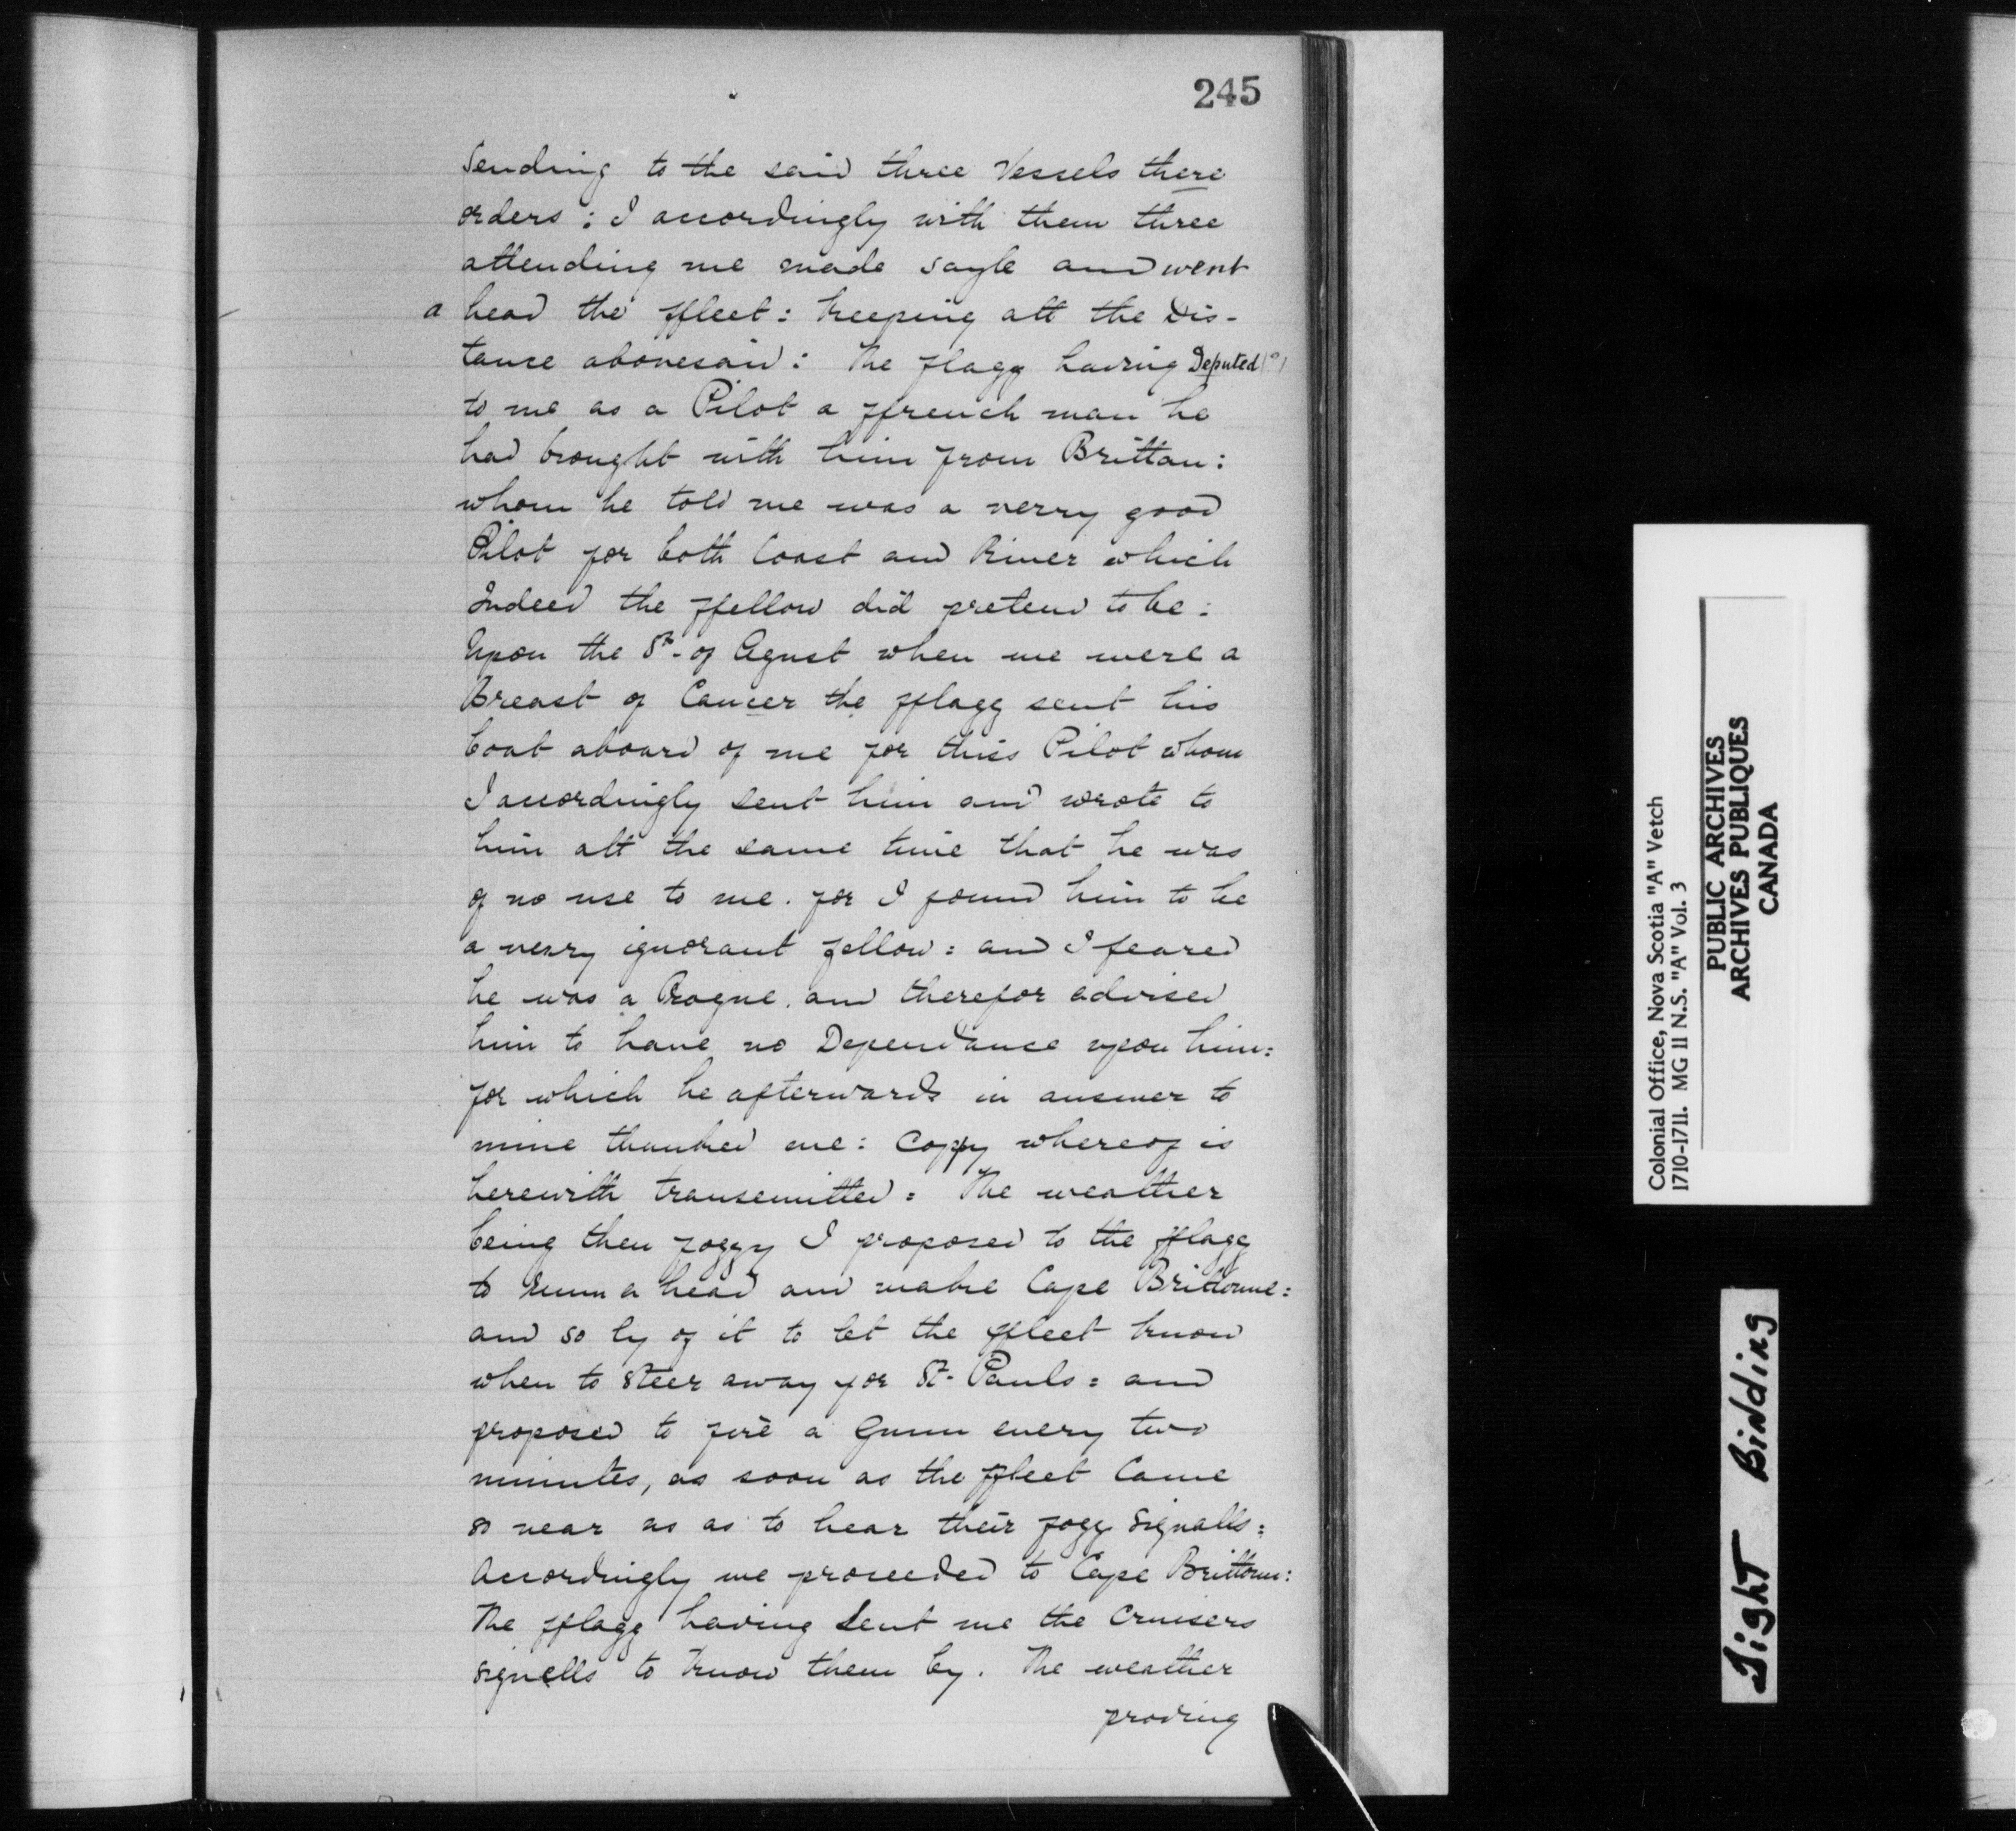 245
Sending to the said three Vessels there
orders : I accordingly with them three
attending me made sayle and went
a head the ffleet : keeping att the Dis-
tance abovesaid : The flagg having Deputed (o)
to me as a Pilot a ffrench man he
had brought with him from Brittan :
whom he told me was a verry good
Pilot for both Coast and River which
Indeed the ffellow did pretend to be :
Upon the 8th of Agust when we were a
Breast of Cancer the fflagg sent his
boat aboard of me for this Pilot whom
I accordingly sent him and wrote to
him att the same time that he was
of no use to me. for I found him to be
a verry ignorant fellow : and I feared
he was a Rogue. and therefor advised
him to have no Dependance upon him :
for which he afterwards in answer to
mine thanked me : Coppy whereof is
herewith transemitted : The weather
being then foggy I proposed to the fflagg
to Runn a head and make Cape Brittonne :
and so ly of it to let the ffleet know
when to steer away for St. Pauls : and
proposed to fire a Gunn every two
minutes, as soon as the ffleet Came
so near us as to hear their fogg Signalls :
Accordingly we proceeded to Cape Brittonn :
The fflagg having Sent me the Cruisers
signells to know them by. The weather
proving
Colonial Office, Nova Scotia "A" Vetch
1710-1711. MG 11 N.S. "A" Vol. 3
PUBLIC ARCHIVES
ARCHIVES PUBLIQUES
CANADA
Tight Binding